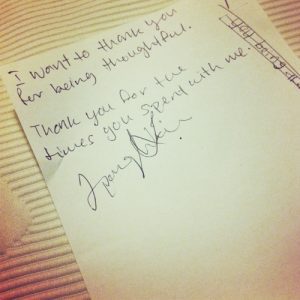 I want to thank you
for being thoughtful.
Thank you for the
times you spent with me.